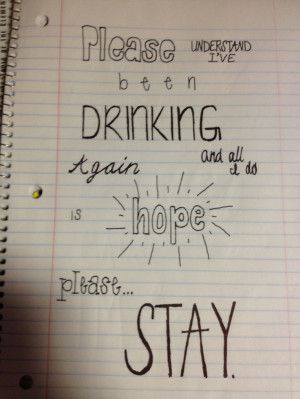 Please UNDERSTAND I'VE
been
DRINKING
Again and all I do
is hope
please...
STAY.